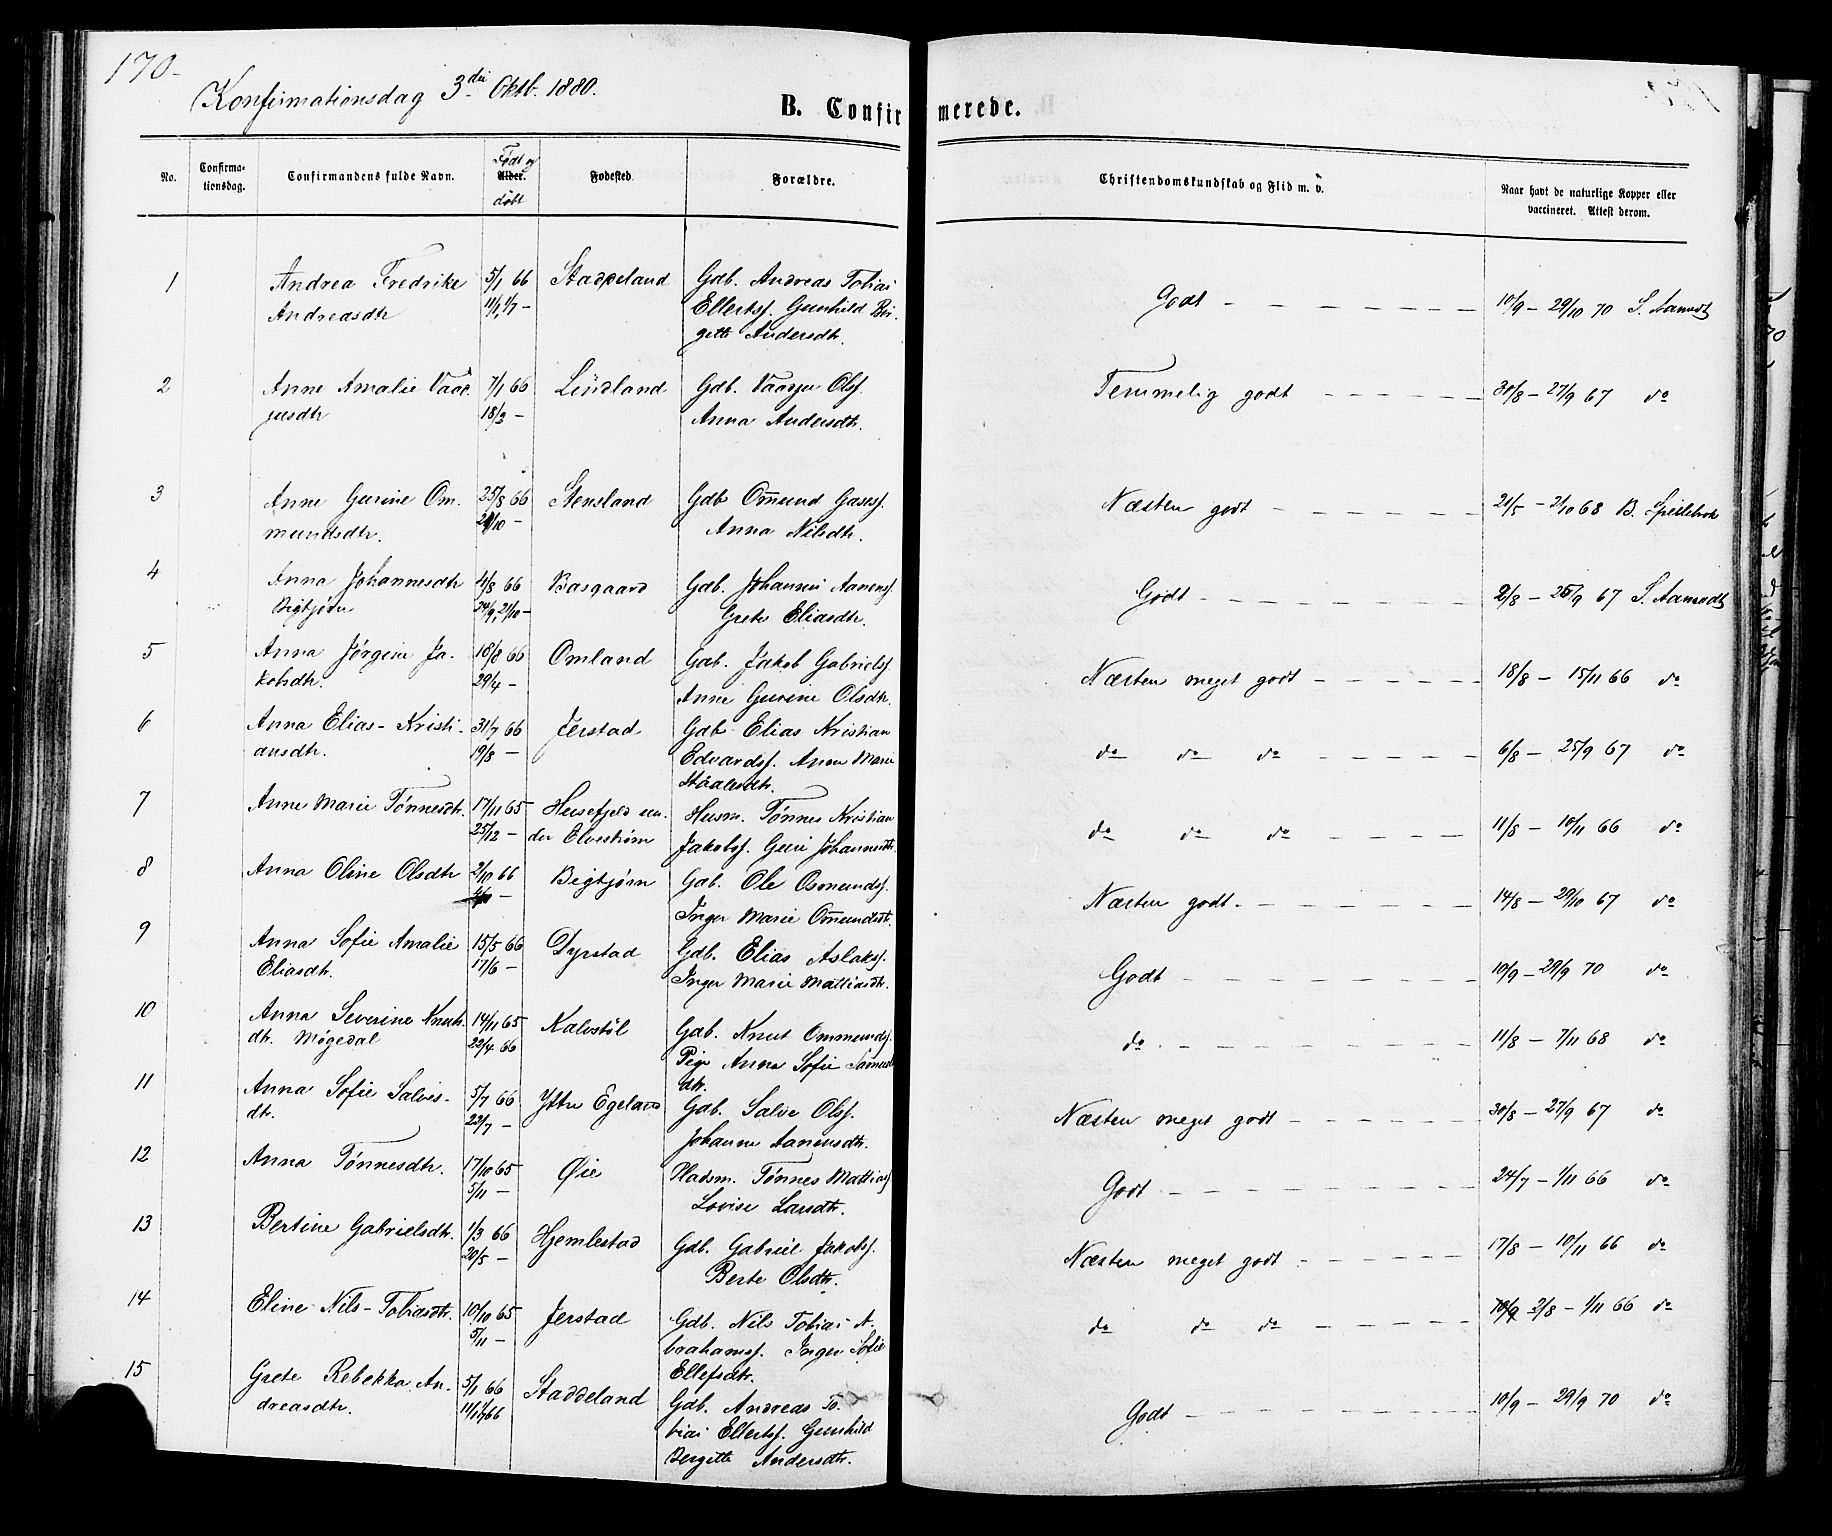 170-
Konfirmationsdag 3die Oktb. 1880.
B. Confirmerede.
No.
Confirma-
tionsdag.
Confirmandens fulde Navn.
Født og
Alder.
døbt
Fødested
Forældre.
Christendomskundskab og Flid m. v.
Naar havt de naturlige Kopper eller
vaccineret. Attest derom.
1 Andrea Fredrike 5/1 66 Staddeland Gdb. Andreas Tobias
Andreasdtr 11/1, 1/7 - Ellertss. Gunhild Bir-
gitte Andersdtr.
Godt 10/9 - 29/10 70 S. Aamodt
2 Anne Amalie Vaar- 7/1 66 Lindland Gdb. Vaarju Olss.
jusdtr 18/2 - Anna Andersdtr.
Temmelig godt 30/8 - 27/9 67 do
3 Anne Gurine Om- 25/8 66 Stensland Gdb Omund Gasess.
mundsdtr. 21/10 - Anna Nilsdtr.
Næsten godt 21/5 - 2/10 68 B. Spillebrok
4 Anna Johannesdtr 4/8 66 Basgaard Gdb. Johannes Aanenss.
Bigtjørn 24/9, 21/10 - Grete Eliasdtr.
Godt 2/8 - 25/9 67 S. Aamodt
5 Anna Jørgine Ja- 18/8 66 Omland Gdb. Jakob Gabrielss.
kobsdtr. 29/4 - Anne Gurine Olsdtr.
Næsten meget godt 18/8 - 15/11 66 do
6 Anna Elias-Kristi- 31/7 66 Jerstad Gdb Elias Kristian
ansdtr. 19/8 - Edvardss. Anne Marie
Ståalesdtr.
do do do 6/8 - 25/9 67 do
7 Anne Marie Tønnesdtr. 17/11 65 Husefjeld un- Husm. Tønnes Kristian
25/12 - der Elvestrøm Jakobss. Guri Johannesdtr
do do do 11/8 - 10/11 66 do
8 Anna Oline Olsdtr 2/10 66 Bigtjørn Gdb. Ole Osmundss.
Inger Marie Omundsdtr.
Næsten godt. 14/8 - 29/10 67 do
9 Anna Sofie Amalie 15/5 66 Dyrstad Gdb. Elias Aslakss.
Eliasdtr. 17/6 - Inger Marie Mattiasdtr.
Godt 10/9 - 29/9 70 do
10 Anna Severine Knuts- 14/11 65 Kalvstøl Gdb. Knut Ommundss.
dtr. Møgedal 22/4 66 Pige Anna Sofie Samuels
dtr.
do. 11/8 - 7/11 68 do
11 Anna Sofie Salves- 5/7 66 Yttre Egeland Gdb. Salve Olss.
dtr. 22/7 - Johanne Aanensdtr.
Næsten meget godt 30/8 - 27/9 67 do
12 Anna Tønnesdtr. 17/10 65 Øie Pladsm. Tønnes Mattiass
5/11 - Lovise Larsdtr.
Godt 24/7 - 1/11 66 do
13 Bertine Gabrielsdtr. 1/3 66 Hjemlestad Gdb. Gabriel Jakobss.
20/5 - Berte Olsdtr.
Næsten meget godt 17/8 - 10/11 66 do
14 Eline Nils-Tobiasdtr. 10/10 65 Jerstad Gdb. Nils Tobias A-
5/11 - brahamss. Inger Sofie
Ellefsdtr.
do do do 2/8 - 1/11 66 do
15 Grete Rebekka An- 5/1 66 Staddeland Gdb. Andreas To-
dreasdtr. 11/1 1/7 66 bias Ellertss. Gunhild
Bergitte Andersdtr.
Godt 10/9 - 29/9 70 do